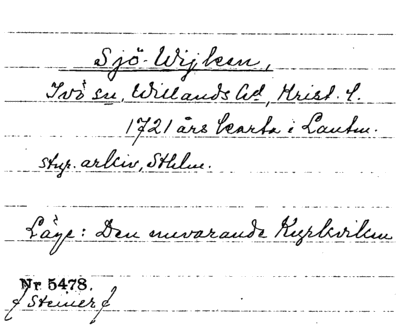 Sjö-Wijken,
Ivö sn, Willands hd, Krist. l.
1721 års karta i Lantm.
styr. arkiv, Sthlm.
Läge: Den nuvarande Kyrkviken
Nr 5478.